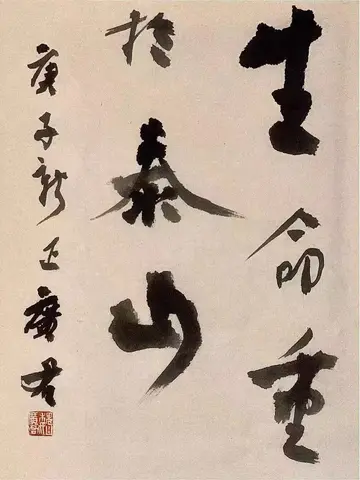 生命重
於泰山
庚子新正